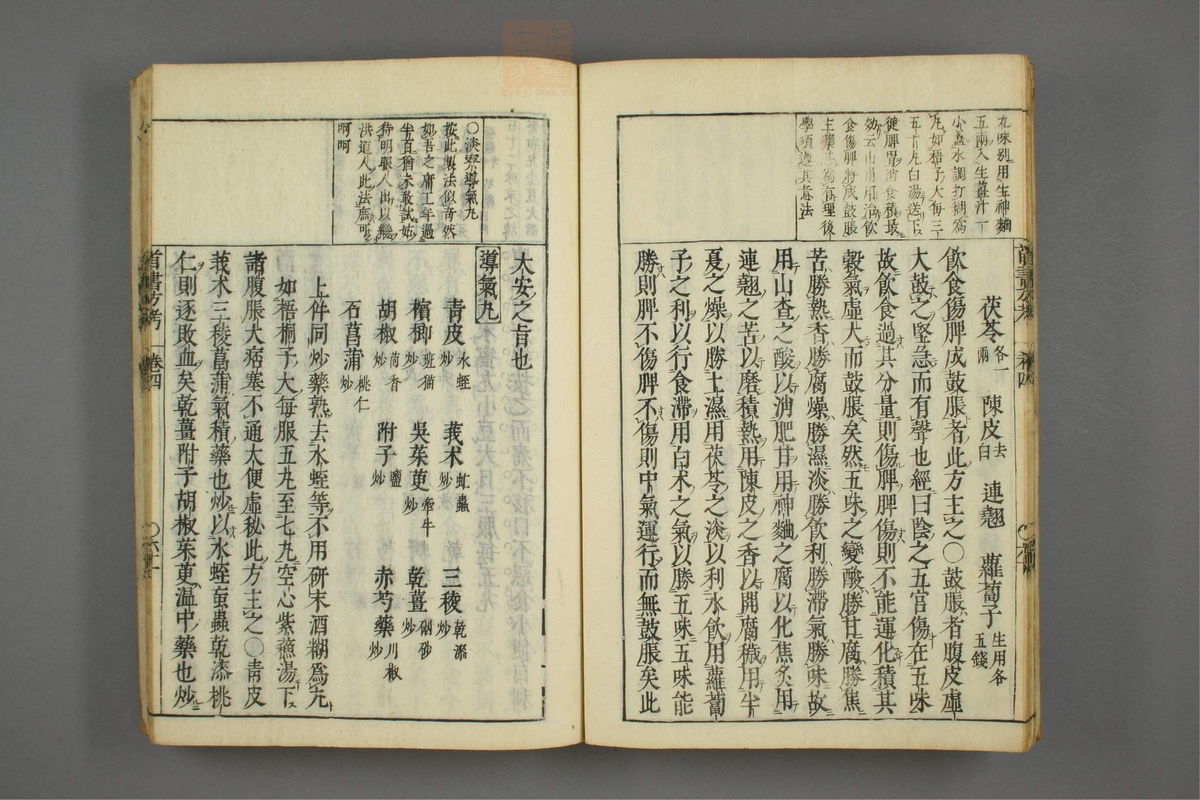 九味別用生神麯
五兩入生薑汁一
小盞水調打糊爲
丸如梧子大每三
五十丸白湯送下
健脾胃消食積最
效云山查用治飲
食傷脾將成鼓脹
上藥
學須遵其意法
茯苓各一兩 陳皮去白 連翹 蘿蔔子生用各五錢
飲食傷脾成鼓脹者此方主之○鼓脹者腹皮虛
大鼓之堅急而有聲也經曰陰之五官傷在五味
故飲食過其分量則傷脾脾傷則不能運化積其
穀氣虛大而鼓脹矣然五味之變酸勝甘腐勝焦
苦勝熱香勝腐燥勝濕淡勝飲利勝滯氣勝味故
用山查之酸以消肥甘用神麯之腐以化焦炙用
連翹之苦以磨積熱用陳皮之香以開腐穢用半
夏之燥以勝土濕用茯苓之淡以利水飲用蘿蔔
子之利以行食滯用白术之氣以勝五味五味能
勝則脾不傷脾不傷則中氣運行而無鼓脹矣此
首書方考 卷四
大安之旨也
導氣丸
青皮水蛭炒 莪术虻蟲炒 三稜乾漆炒
檳榔班猫炒 吳茱萸牽牛炒 乾薑硇砂炒
胡椒茴香炒 附子鹽炒 赤芍藥川椒炒
石菖蒲桃仁炒
上件同炒藥熟去水蛭等不用研末酒糊爲丸
如梧桐子大每服五丸至七丸空心紫蘇湯下
諸腹脹大痞塞不通大便虛秘此方主之○青皮
莪术三稜菖蒲氣積藥也炒以水蛭虻蟲乾漆桃
仁則逐敗血矣乾薑附子胡椒茱萸溫中藥也炒
○淡寮導氣丸
按此製法似奇然
如吾之庸工年過
半百猶未敢試姑
待明眼人出以繼
洪道人此法庶可
呵呵
首書方考 卷四